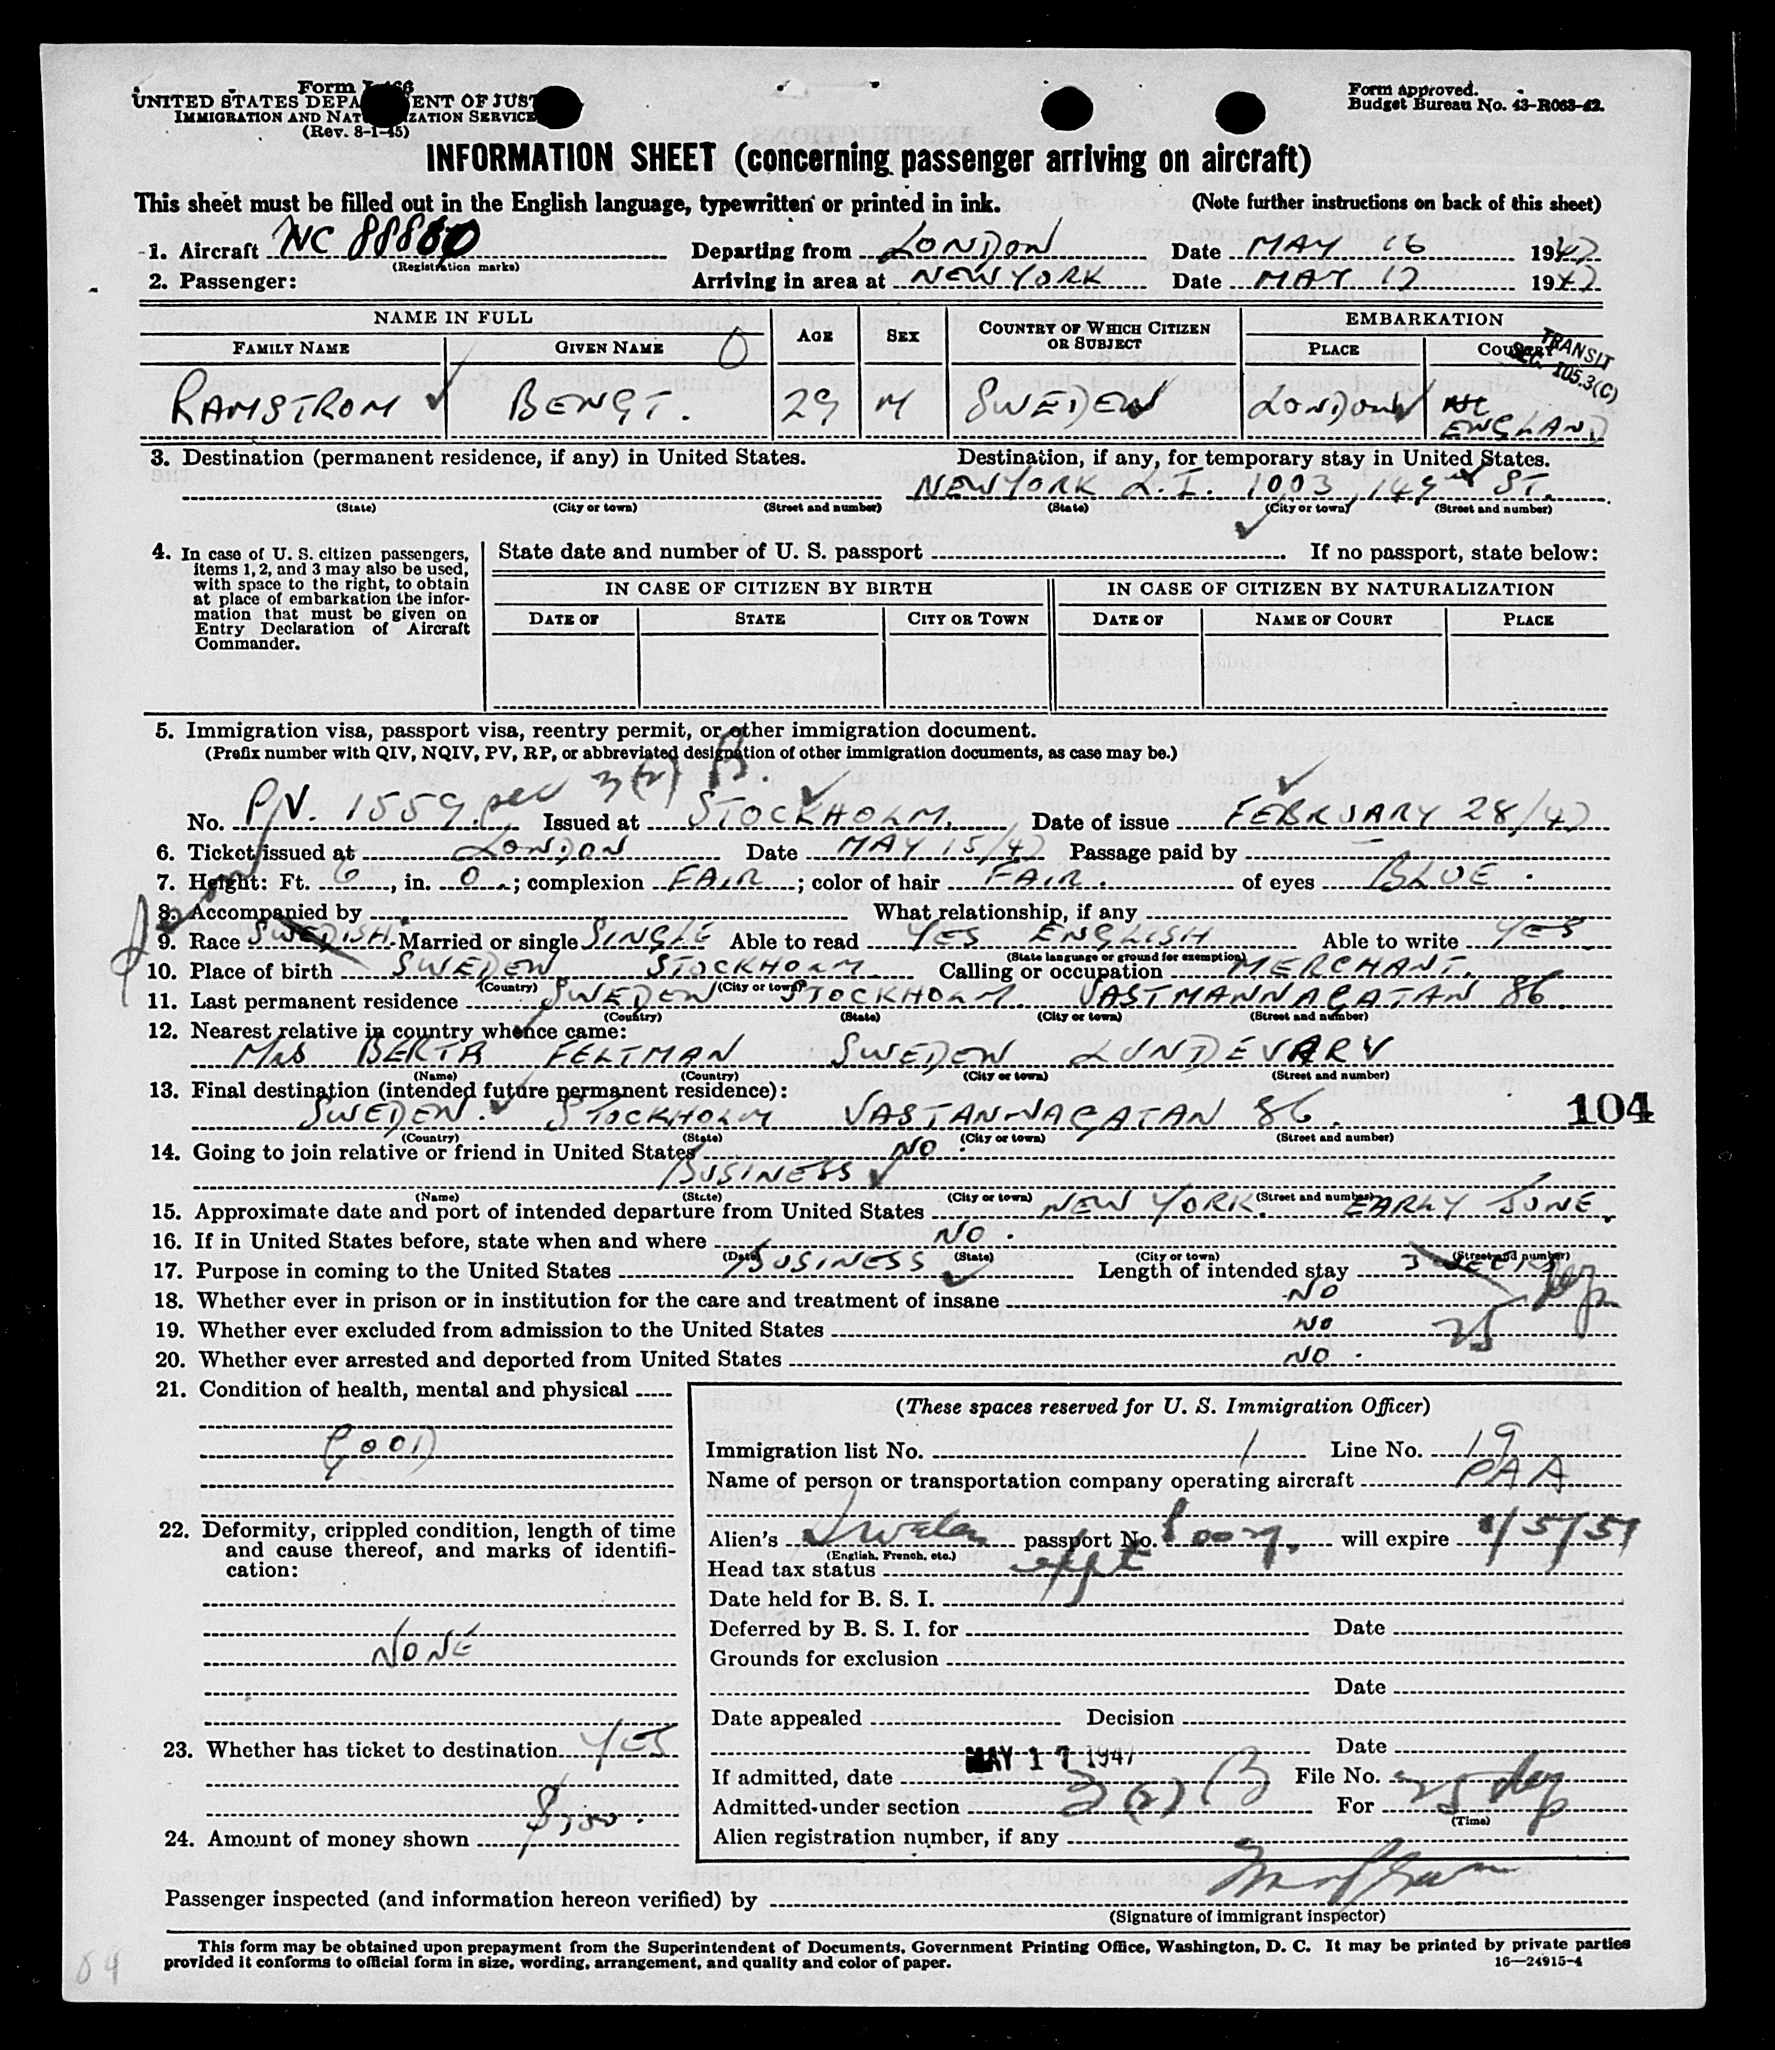 Form I-466
UNITED STATES DEPA ENT OF JUST
IMMIGRATION AND NAT ZATION SERVICE
(Rev. 8-1-45)
Form approved.
Budget Bureau No. 43-R063-42.
INFORMATION SHEET (concerning passenger arriving on aircraft)
This sheet must be filled out in the English language, typewritten or printed in ink. (Note further instructions on back of this sheet)
1. Aircraft NC 88880 Departing from LONDON Date MAY 16 1947
(Registration marks)
2. Passenger: Arriving in area at NEW YORK Date MAY 17 1947
NAME IN FULL AGE SEX COUNTRY OF WHICH CITIZEN OR SUBJECT EMBARKATION
FAMILY NAME GIVEN NAME O PLACE COUNTRY
TRANSIT
SEC. 105.3(C)
RAMSTROM BENGT. 29 M SWEDEN LONDON ENGLAND
3. Destination (permanent residence, if any) in United States. Destination, if any, for temporary stay in United States.
NEW YORK L.I. 1003, 149 ST.
(State) (City or town) (Street and number) (State) (City or town) (Street and number)
4. In case of U. S. citizen passengers, items 1, 2, and 3 may also be used, with space to the right, to obtain at place of embarkation the information that must be given on Entry Declaration of Aircraft Commander.
State date and number of U. S. passport If no passport, state below:
IN CASE OF CITIZEN BY BIRTH IN CASE OF CITIZEN BY NATURALIZATION
DATE OF STATE CITY OR TOWN DATE OF NAME OF COURT PLACE
5. Immigration visa, passport visa, reentry permit, or other immigration document.
(Prefix number with QIV, NQIV, PV, RP, or abbreviated designation of other immigration documents, as case may be.)
3(2) B.
No. P.V. 1559 sec Issued at STOCKHOLM. Date of issue FEBRUARY 28/47
6. Ticket issued at LONDON Date MAY 15/47 Passage paid by
7. Height: Ft. 6, in. 0; complexion FAIR; color of hair FAIR. of eyes BLUE.
8. Accompanied by What relationship, if any
9. Race SWEDISH. Married or single SINGLE Able to read YES ENGLISH Able to write YES
(State language or ground for exemption)
10. Place of birth SWEDEN STOCKHOLM Calling or occupation MERCHANT.
(Country) (City or town)
11. Last permanent residence SWEDEN STOCKHOLM. VASTMANNAGATAN 86.
(Country) (State) (City or town) (Street and number)
12. Nearest relative in country whence came:
MRS BERTA FELTMAN SWEDEN LUNDEVARV
(Name) (Country) (City or town) (Street and number)
13. Final destination (intended future permanent residence):
SWEDEN. STOCKHOLM VASTANNAGATAN 86.
104
(Country) (State) (City or town) (Street and number)
14. Going to join relative or friend in United States NO.
BUSINESS
(Name) (State) (City or town) (Street and number)
15. Approximate date and port of intended departure from United States NEW YORK. EARLY JUNE.
16. If in United States before, state when and where NO.
(Date) (State) (City or town) (Street and number)
17. Purpose in coming to the United States BUSINESS Length of intended stay 3 WEEKS
18. Whether ever in prison or in institution for the care and treatment of insane NO
19. Whether ever excluded from admission to the United States NO
20. Whether ever arrested and deported from United States NO.
21. Condition of health, mental and physical
GOOD
22. Deformity, crippled condition, length of time and cause thereof, and marks of identification:
NONE
23. Whether has ticket to destination YES
24. Amount of money shown
(These spaces reserved for U. S. Immigration Officer)
Immigration list No. 1 Line No. 19
Name of person or transportation company operating aircraft PAA
Alien's Sweden passport No. will expire
(English, French, etc.)
Head tax status
Date held for B. S. I.
Deferred by B. S. I. for Date
Grounds for exclusion
Date
Date appealed Decision
Date
If admitted, date MAY 17 1947 File No.
Admitted under section 3(2) B For 25 dys
(Time)
Alien registration number, if any
Passenger inspected (and information hereon verified) by
(Signature of immigrant inspector)
This form may be obtained upon prepayment from the Superintendent of Documents, Government Printing Office, Washington, D. C. It may be printed by private parties
provided it conforms to official form in size, wording, arrangement, and quality and color of paper.
16—24915-4